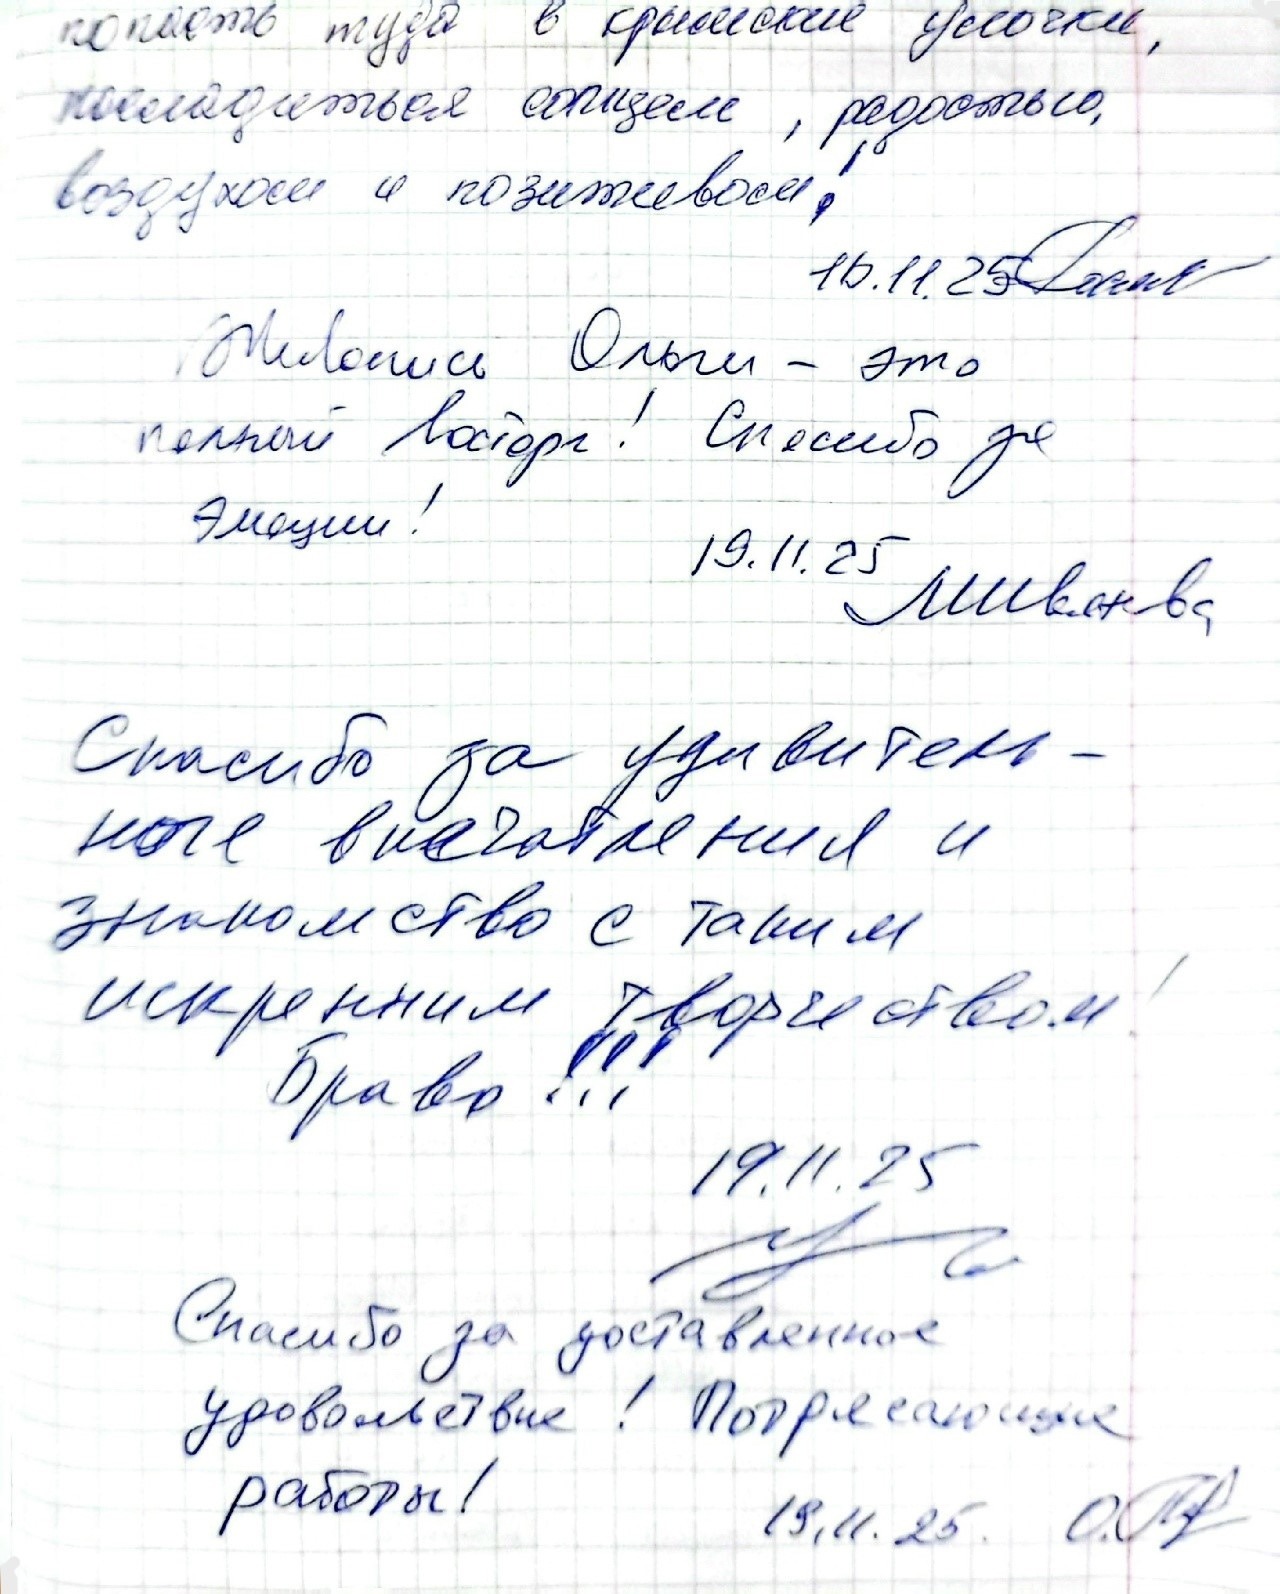 попасть туда в крымские улочки,
насладиться солнцем, радостью,
воздухом и позитивом!
16.11.25
Живопись Ольги – это
полный восторг! Спасибо за
эмоции!
19.11.25
Спасибо за удивитель-
ное впечатления и
знакомство с таким
искренним творчеством!
Браво!!!
19.11.25
Спасибо за доставленное
удовольствие! Потрясающие
работы!
19.11.25. О.